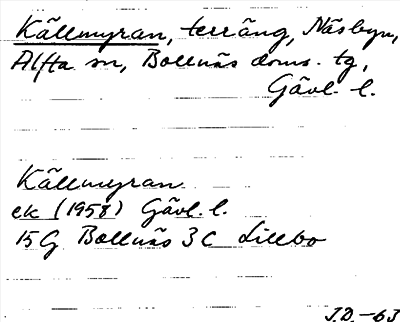 Källmyran, terräng, Näsbyn,
Alfta sn, Bollnäs doms. tg,
Gävl. l.
Källmyran
ek (1958) Gävl. l.
15G Bollnäs 3C Lillbo
J.D.-63